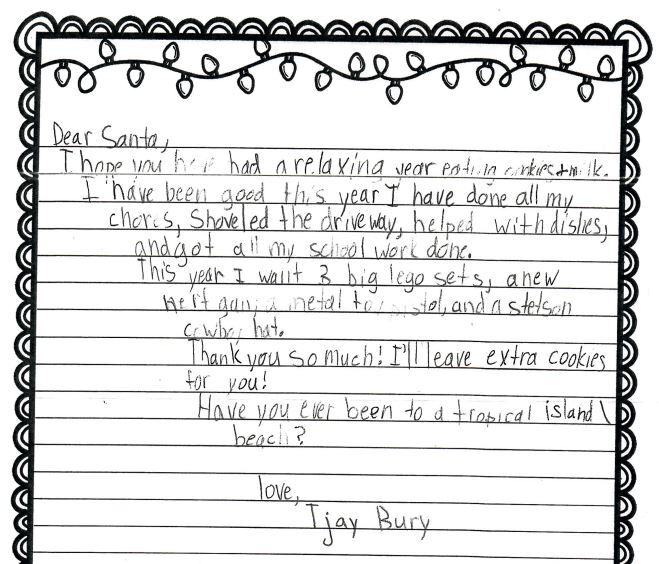 Dear Santa,
I hope you have had a relaxing year eating cookies + milk.
I have been good this year I have done all my
chores, Shoveled the driveway, helped with dishes,
and got all my school work done.
This year I want 3 big lego sets, a new
nerf gun, a metal toy pistol, and a stetson
cowboy hat.
Thank you so much! I'll leave extra cookies
for you!
Have you ever been to a tropical island \
beach?
love,
Tjay Bury